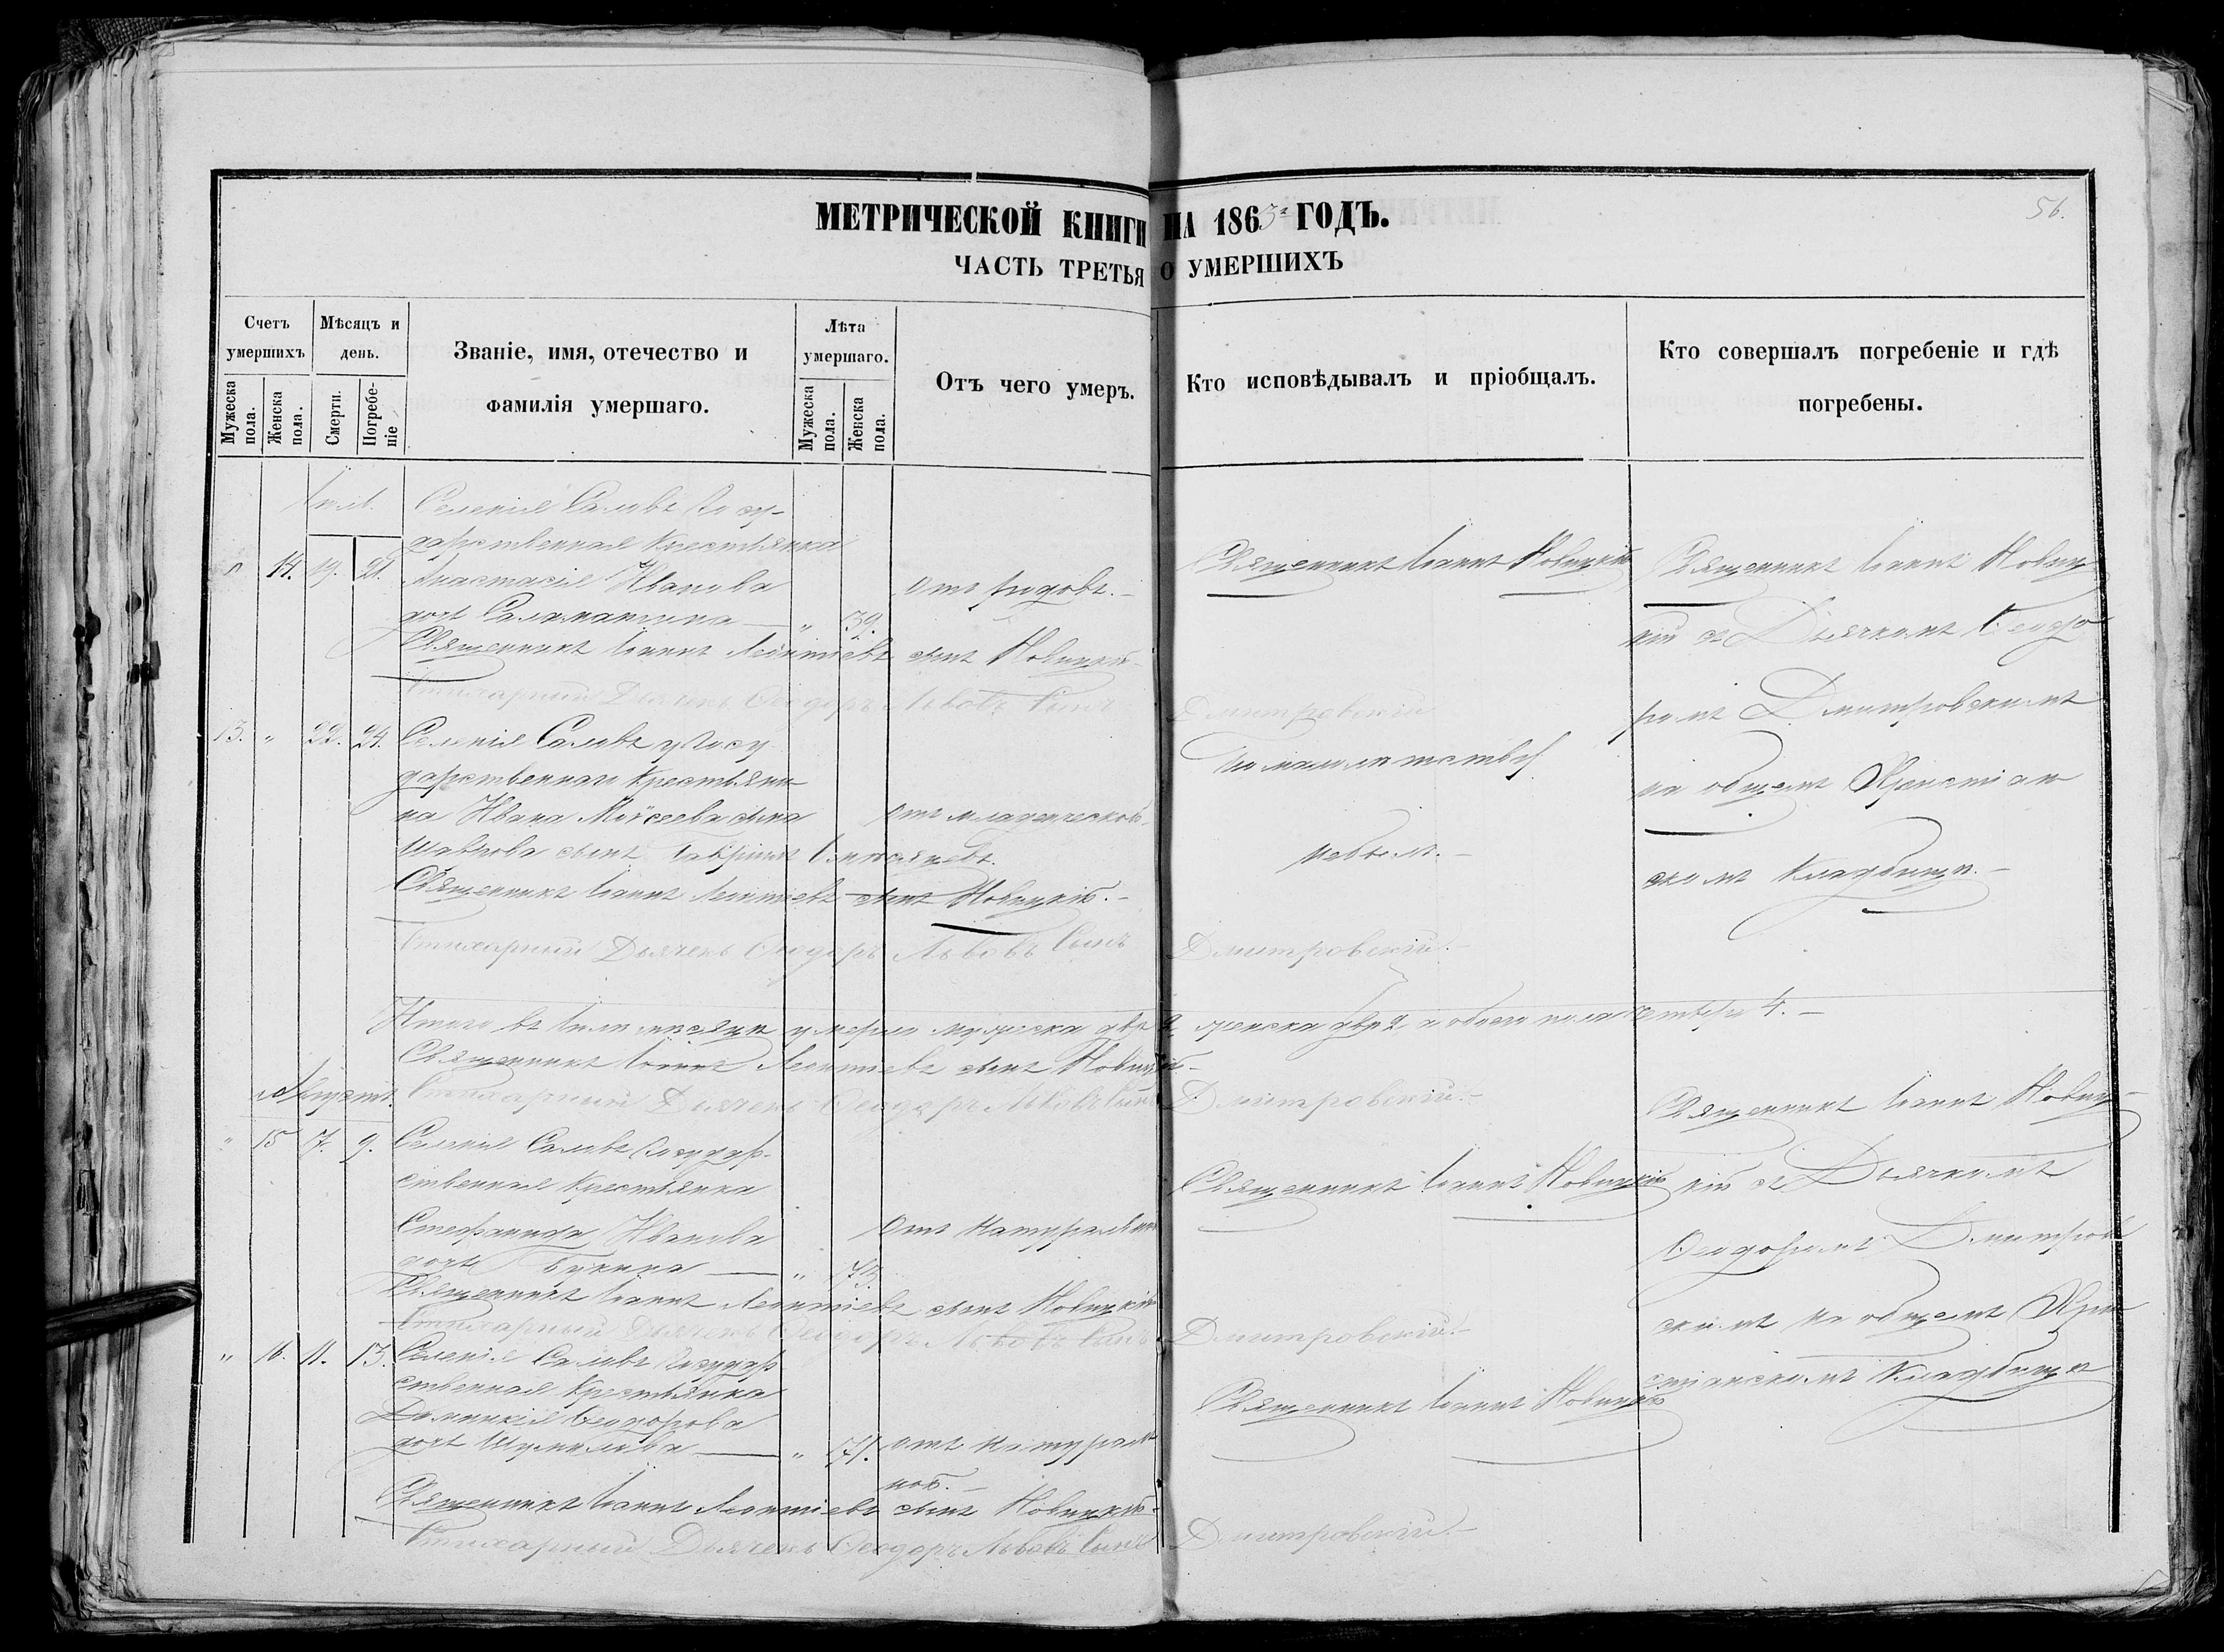 МЕТРИЧЕСКОЙ КНИГИ НА 1863 ГОДЪ.
56.
ЧАСТЬ ТРЕТЬЯ О УМЕРШИХЪ
Счетъ умершихъ
Мужеска пола.
Женска пола.
Мѣсяцъ и день.
Смерти.
Погребеніе
Званіе, имя, отечество и фамилія умершаго.
Лѣта умершаго.
Мужеска пола.
Женска пола.
Отъ чего умеръ.
Кто исповѣдывалъ и пріобщалъ.
Кто совершалъ погребеніе и гдѣ погребены.
Іюль.
" 14. 19. 21.
Селенія Госу-
дарственная Крестьянка
Анастасія Иванова
дочь
" 39.
Отъ родовъ.
Священникъ Іоаннъ Новицкій
Священникъ Іоаннъ Новиц
кій съ Дьячкомъ Ѳеодо
ромъ Дмитровскимъ
на общемъ Христіан
скомъ Кладбищѣ.
Священникъ Іоаннъ Леонтіевъ сынъ Новицкій
Стихарный Дьячекъ Ѳеодоръ Львовъ Сынъ Дмитровскій
13. " 22. 24.
Селенія у Госу
дарственнаго Крестьяни
на Ивана Моѵсеева сына
сынъ Гавріилъ
Отъ младенческой
По малолѣтству
небылъ.
Священникъ Іоаннъ Леонтіевъ сынъ Новицкій.
Стихарный Дьячекъ Ѳеодоръ Львовъ Сынъ Дмитровскій.
Итого въ Іюлѣ мѣсяцѣ умерло мужеска два 2, женска два 2, а обоего пола четыре 4.
Священникъ Іоаннъ Леонтіевъ сынъ Новицкій
Стихарный Дьячекъ Ѳеодоръ Львовъ Сынъ Дмитровскій.
Августъ.
" 15 7. 9.
Селенія Государ-
ственная Крестьянка
Стефанида Иванова
дочь Букина
" 73.
Отъ Натуральной
Священникъ Іоаннъ Новицкій
Священникъ Іоаннъ Новиц
кій съ Дьячкомъ
Ѳеодоромъ Дмитров
скимъ на общемъ Хри
стіанскомъ Кладбищѣ
Священникъ Іоаннъ Леонтіевъ сынъ Новицкій
Стихарный Дьячекъ Ѳеодоръ Львовъ Сынъ Дмитровскій.
" 16. 11. 13.
Селенія Государ
ственная Крестьянка
Домникія Ѳеодорова
дочь Шумилова
" 71.
отъ натураль
ной.
Священникъ Іоаннъ Новицкій
Священникъ Іоаннъ Леонтіевъ сынъ Новицкій.
Стихарный Дьячекъ Ѳеодоръ Львовъ Сынъ Дмитровскій.